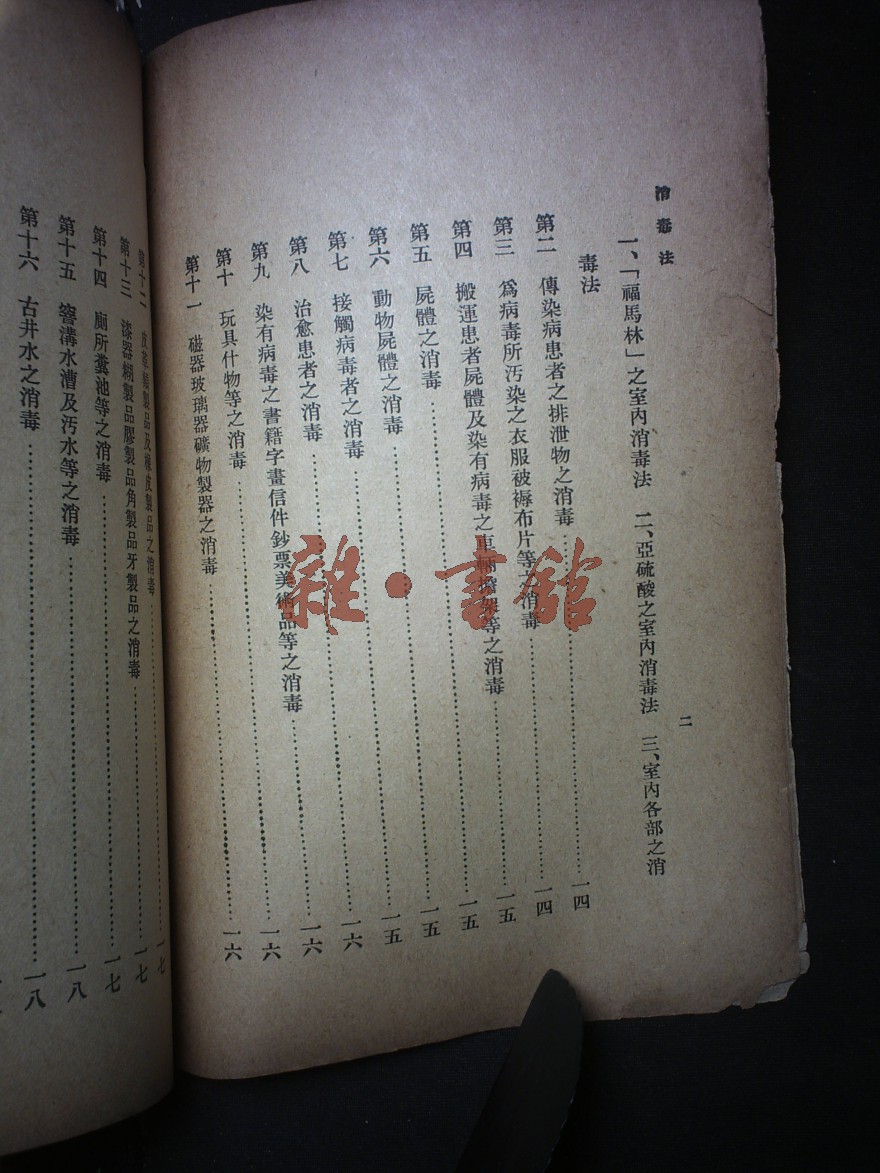 消毒法
二
一、「福馬林」之室內消毒法　二、亞硫酸之室內消毒法　三、室內各部之消
毒法……一四
第二　傳染病患者之排泄物之消毒……一四
第三　爲病毒所污染之衣服被褥布片等之消毒……一五
第四　搬運患者屍體及染有病毒之車輛擔架等之消毒……一五
第五　屍體之消毒……一五
第六　動物屍體之消毒……一五
第七　接觸病毒者之消毒……一六
第八　治愈患者之消毒……一六
第九　染有病毒之書籍字畫信件鈔票美術品等之消毒……一六
第十　玩具什物等之消毒……一六
第十一　磁器玻璃器礦物製器之消毒
第十二　皮革製品及橡皮製品之消毒……一七
第十三　漆器糊製品膠製品角製品牙製品之消毒……一七
第十四　廁所糞池等之消毒……一七
第十五　窖溝水漕及污水等之消毒……一八
第十六　古井水之消毒……一八
雜·書館